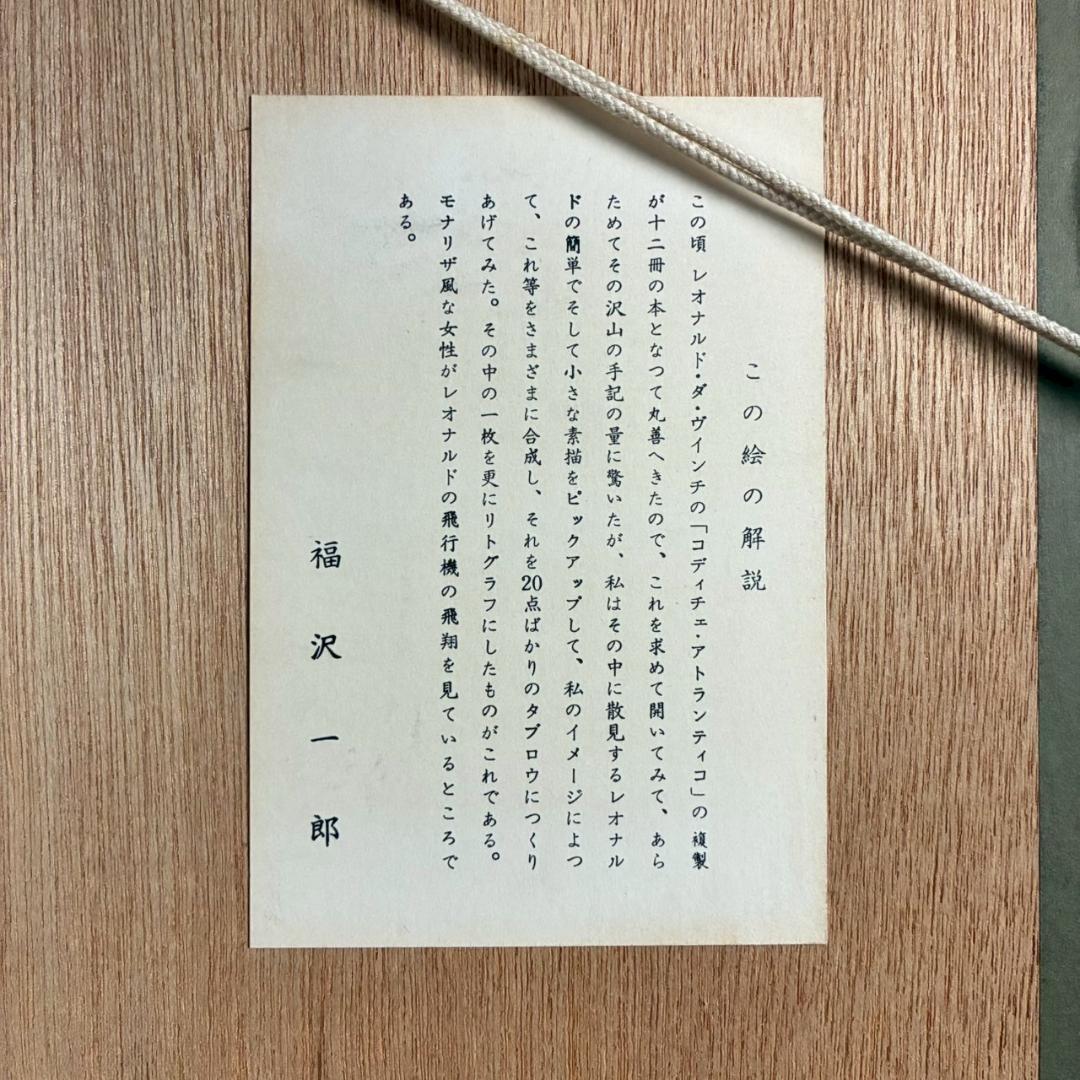 この絵の解説
この頃 レオナルド・ダ・ヴインチの「コディチェ・アトランティコ」の複製
が十二冊の本となつて丸善へきたので、これを求めて開いてみて、あら
ためてその沢山の手記の量に驚いたが、私はその中に散見するレオナル
ドの簡単でそして小さな素描をピックアップして、私のイメージによつ
て、これ等をさまざまに合成し、それを20点ばかりのタブロウにつくり
あげてみた。その中の一枚を更にリトグラフにしたものがこれである。
モナリザ風な女性がレオナルドの飛行機の飛翔を見ているところで
ある。
福沢一郎